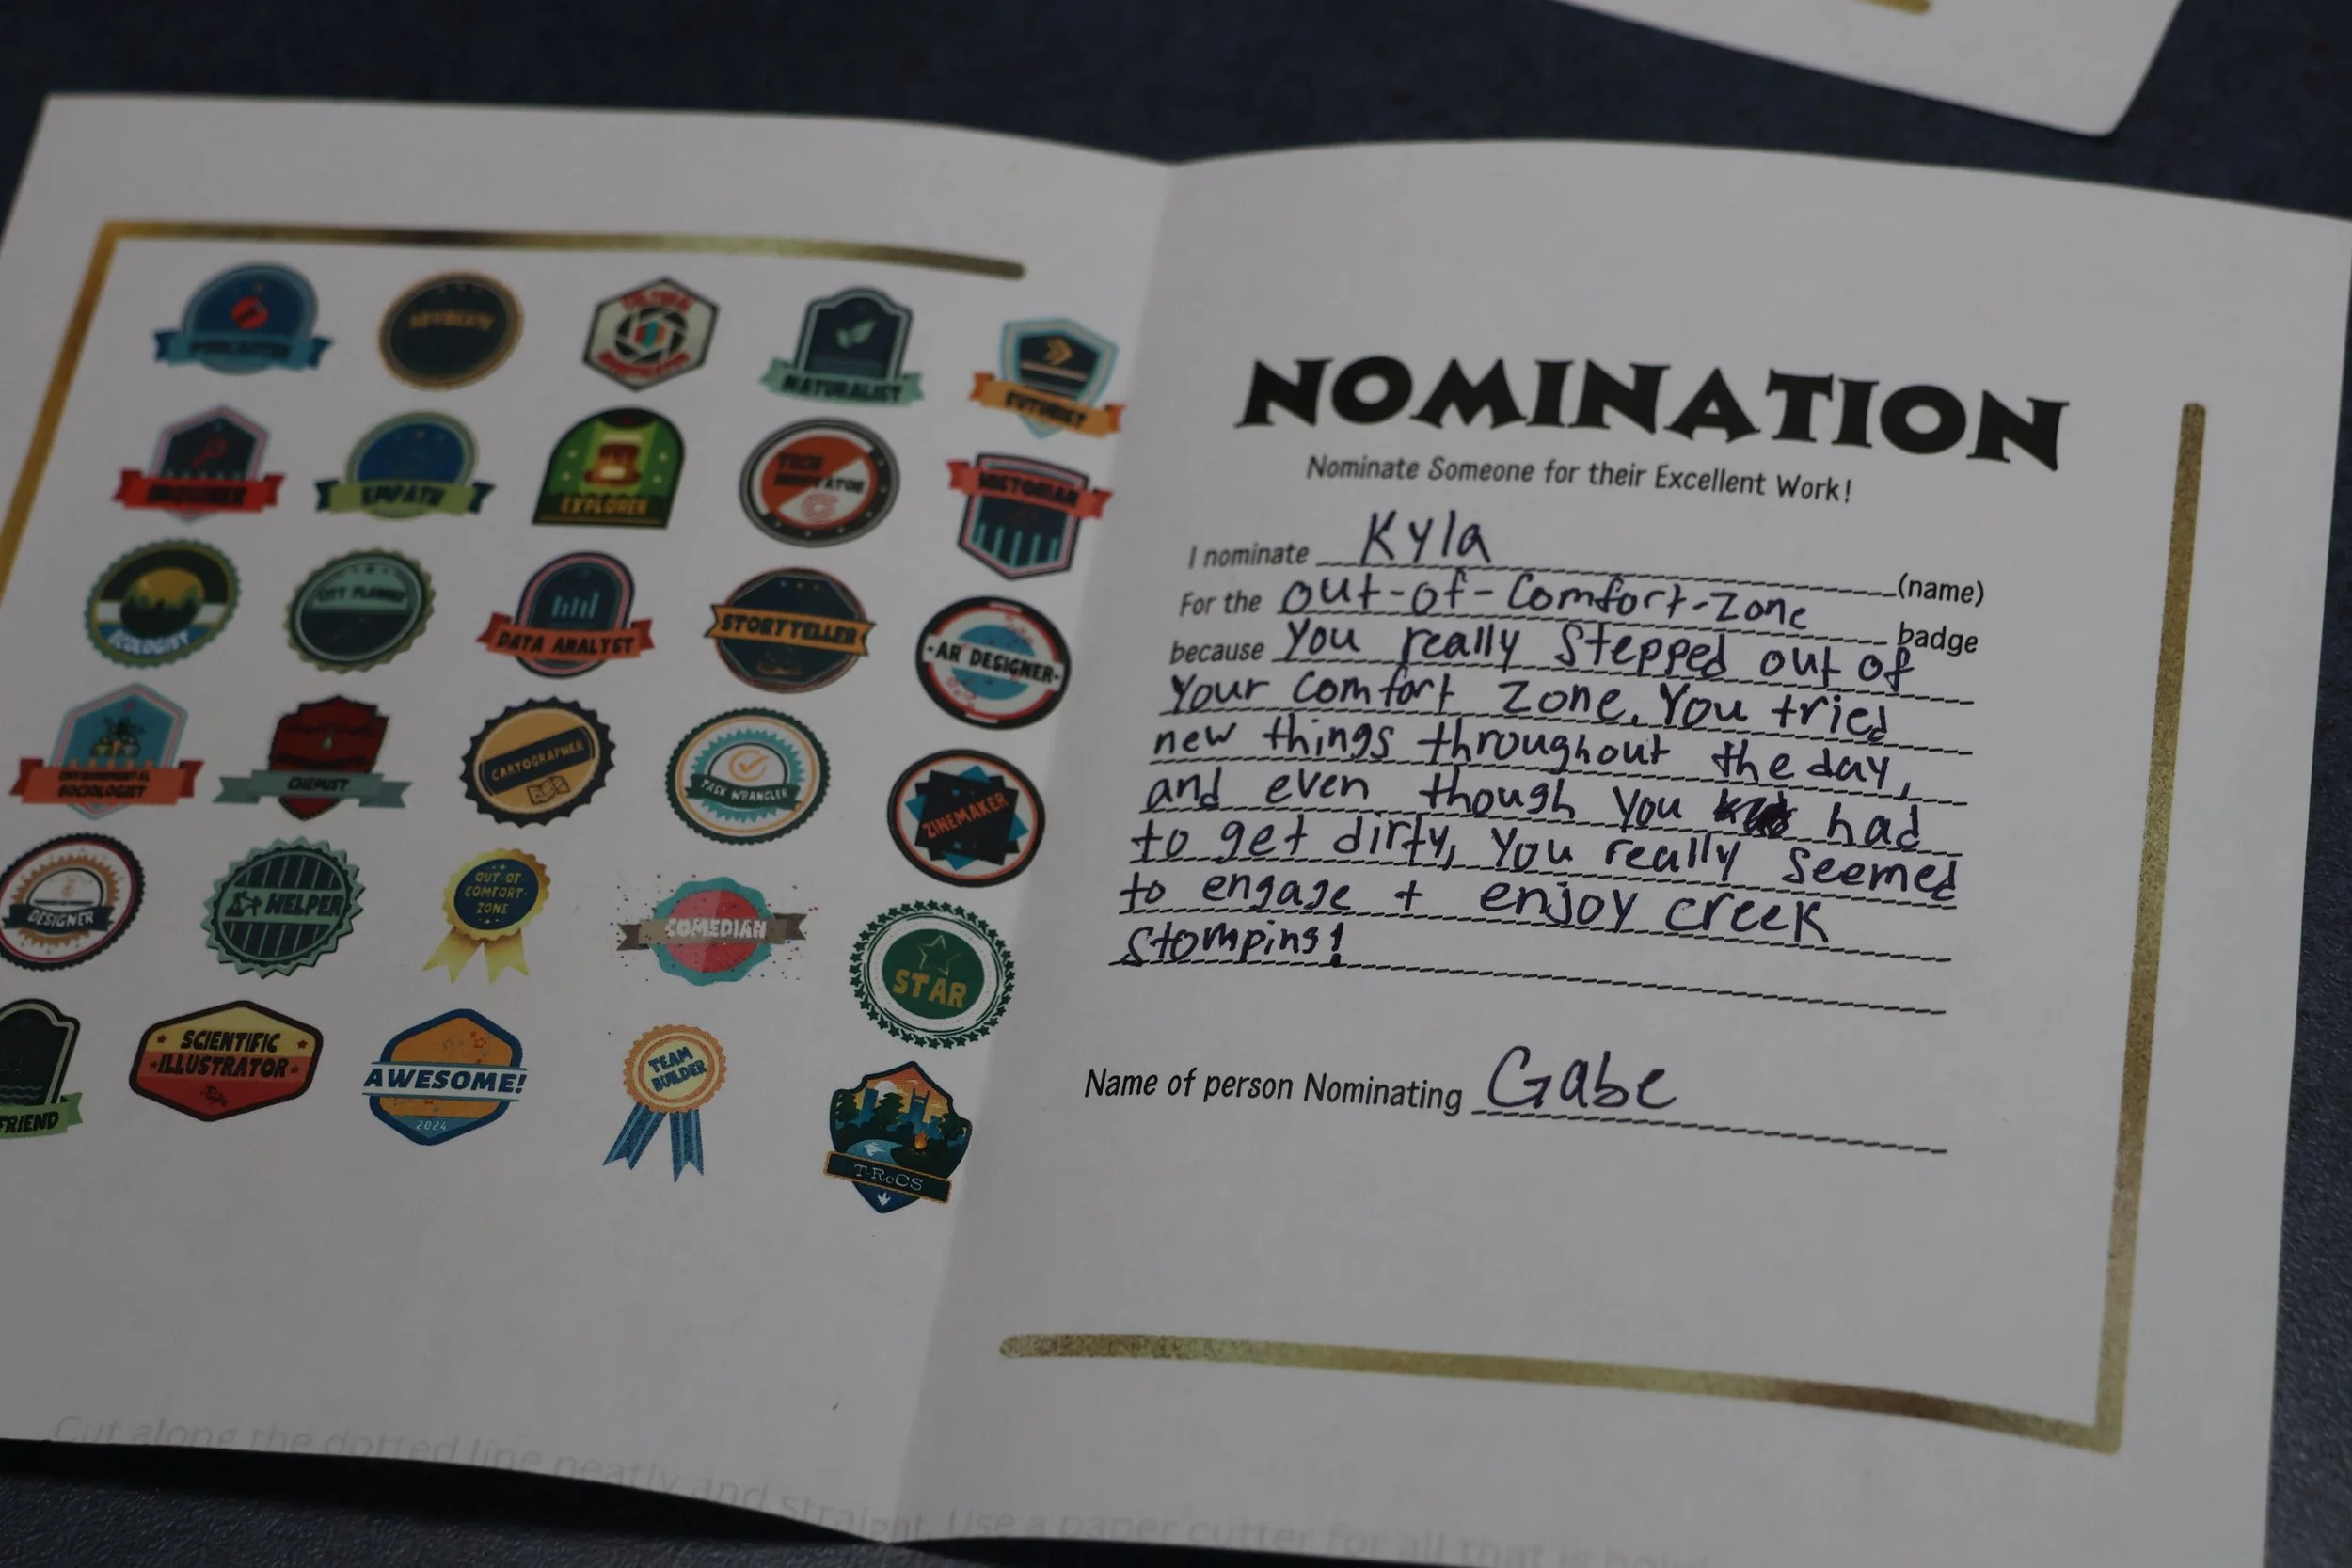 PODCASTER
ADVOCATE
NATURALIST
FUTURIST
EMPATH
EXPLORER
TECH
INNOVATOR
HISTORIAN
ECOLOGIST
CITY PLANNER
DATA ANALYST
STORYTELLER
·AR DESIGNER·
ENVIRONMENTAL
SOCIOLOGIST
CHEMIST
CARTOGRAPHER
TASK WRANGLER
ZINEMAKER
DESIGNER
HELPER
OUT-OF-
COMFORT-
ZONE
COMEDIAN
STAR
FRIEND
SCIENTIFIC
·ILLUSTRATOR·
AWESOME!
2024
TEAM
BUILDER
T-RoCS
NOMINATION
Nominate Someone for their Excellent Work!
I nominate Kyla (name)
For the out-of-Comfort-Zone badge
because You really Stepped out of
Your Comfort Zone. You tried
new things throughout the day,
and even though you had
to get dirty, you really seemed
to engage + enjoy creek
Stomping!
Name of person Nominating Gabe
Cut along the dotted line neatly and straight. Use a paper cutter for all that is